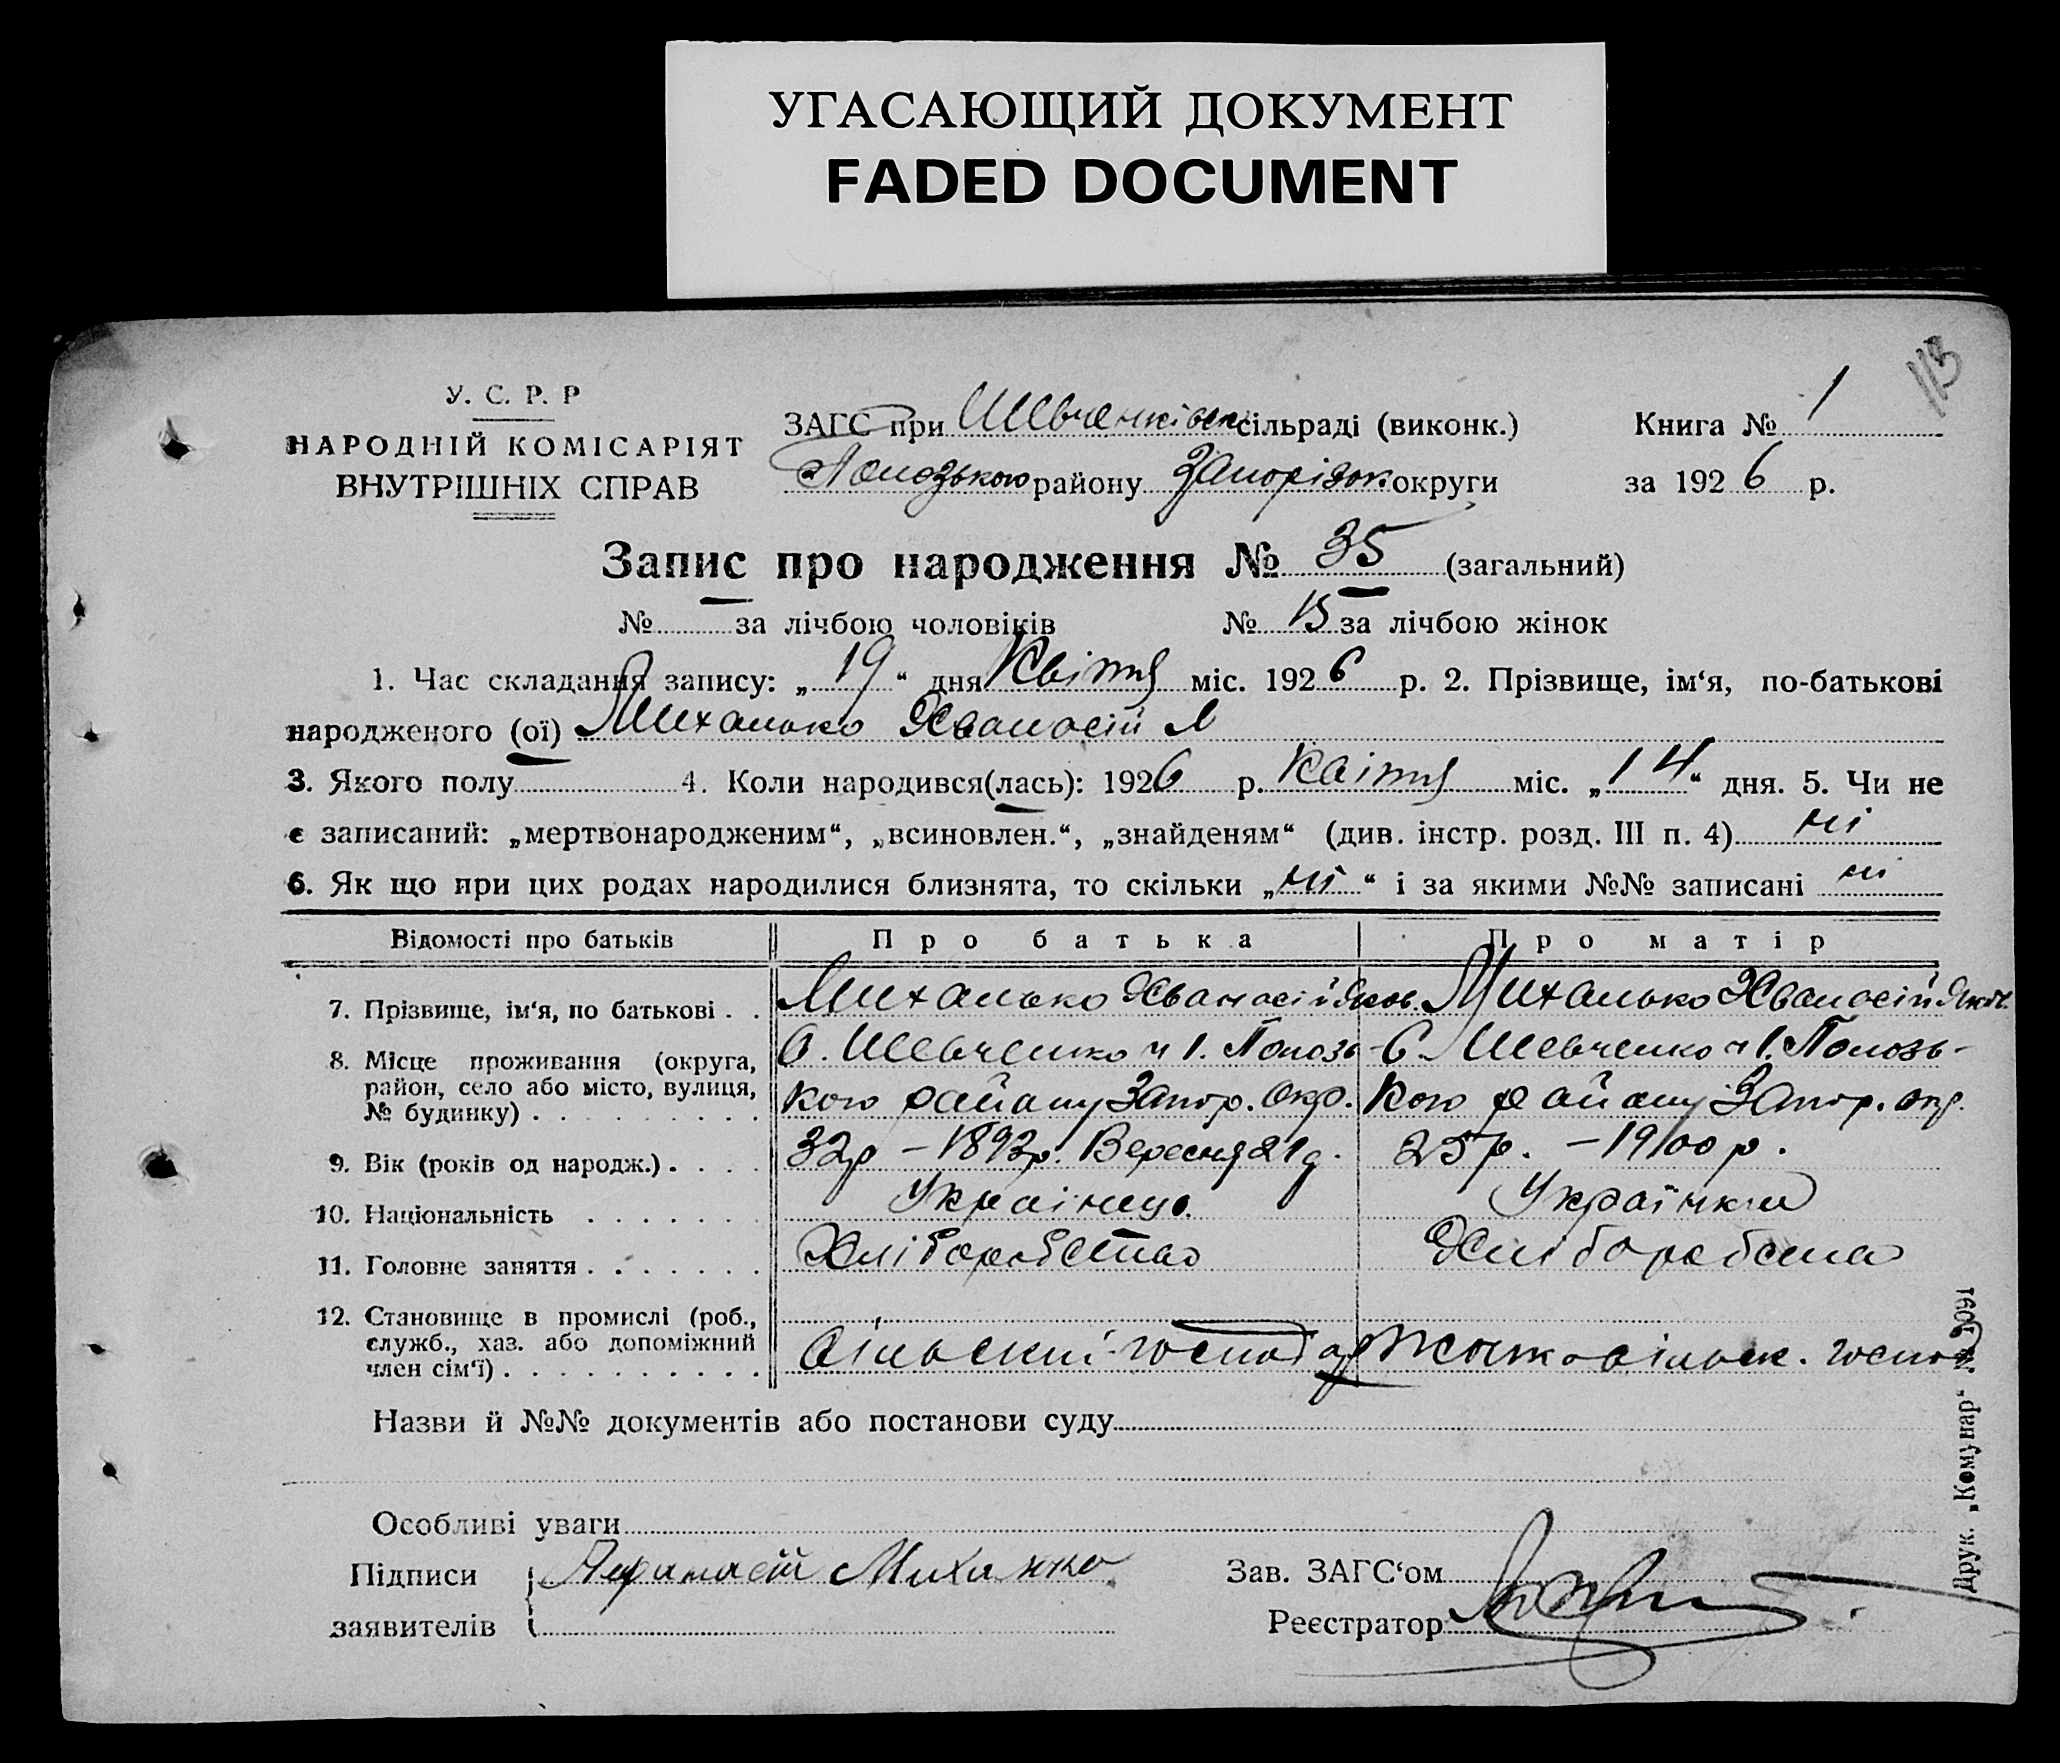 УГАСАЮЩИЙ ДОКУМЕНТ
FADED DOCUMENT
113
У. С. Р. Р
НАРОДНІЙ КОМІСАРІЯТ
ВНУТРІШНІХ СПРАВ
ЗАГС при Шевченківськ сільраді (виконк.)
Полозького району Запорізьк округи
Книга № 1
за 1926 р.
Запис про народження № 35 (загальний)
№ — за лічбою чоловіків № 15 за лічбою жінок
1. Час складання запису: „ 19 “ дня Квітня міс. 1926 р. 2. Прізвище, ім‘я, по-батькові
народженого (ої) Михалько Хванасій
3. Якого полу 4. Коли народився(лась): 1926 р. Квітня міс. „ 14 “ дня. 5. Чи не
є записаний: „мертвонародженим“, „всиновлен.“, „знайденям“ (див. інстр. розд. III п. 4) ні
6. Як що при цих родах народилися близнята, то скільки „ ні “ і за якими №№ записані ні
Відомості про батьків Про батька Про матір
7. Прізвище, ім‘я, по батькові . . Михалько Хванасій Яков. Михалько Хванасій
8. Місце проживання (округа, район, село або місто, вулиця, № будинку)
С. Шевченко ч 1. Полозь- С. Шевченко ч 1. Полозь-
кого району Запор. окр. кого району Запор. окр.
9. Вік (років од народж.) . . . . 32р – 1892р. Вересня 21д. 25р. – 1900 р.
10. Національність . . . . . . Українець. Українка
11. Головне заняття . . . . . . . Хліборобство Хліборобство
12. Становище в промислі (роб., служб., хаз. або допоміжний член сім‘ї)
сільский господар жінка сільск. господ
Назви й №№ документів або постанови суду
Особливі уваги
Підписи
заявителів
Афанасій Михалько
Зав. ЗАГС‘ом
Реєстратор
Друк. „Комунар“ № 3091